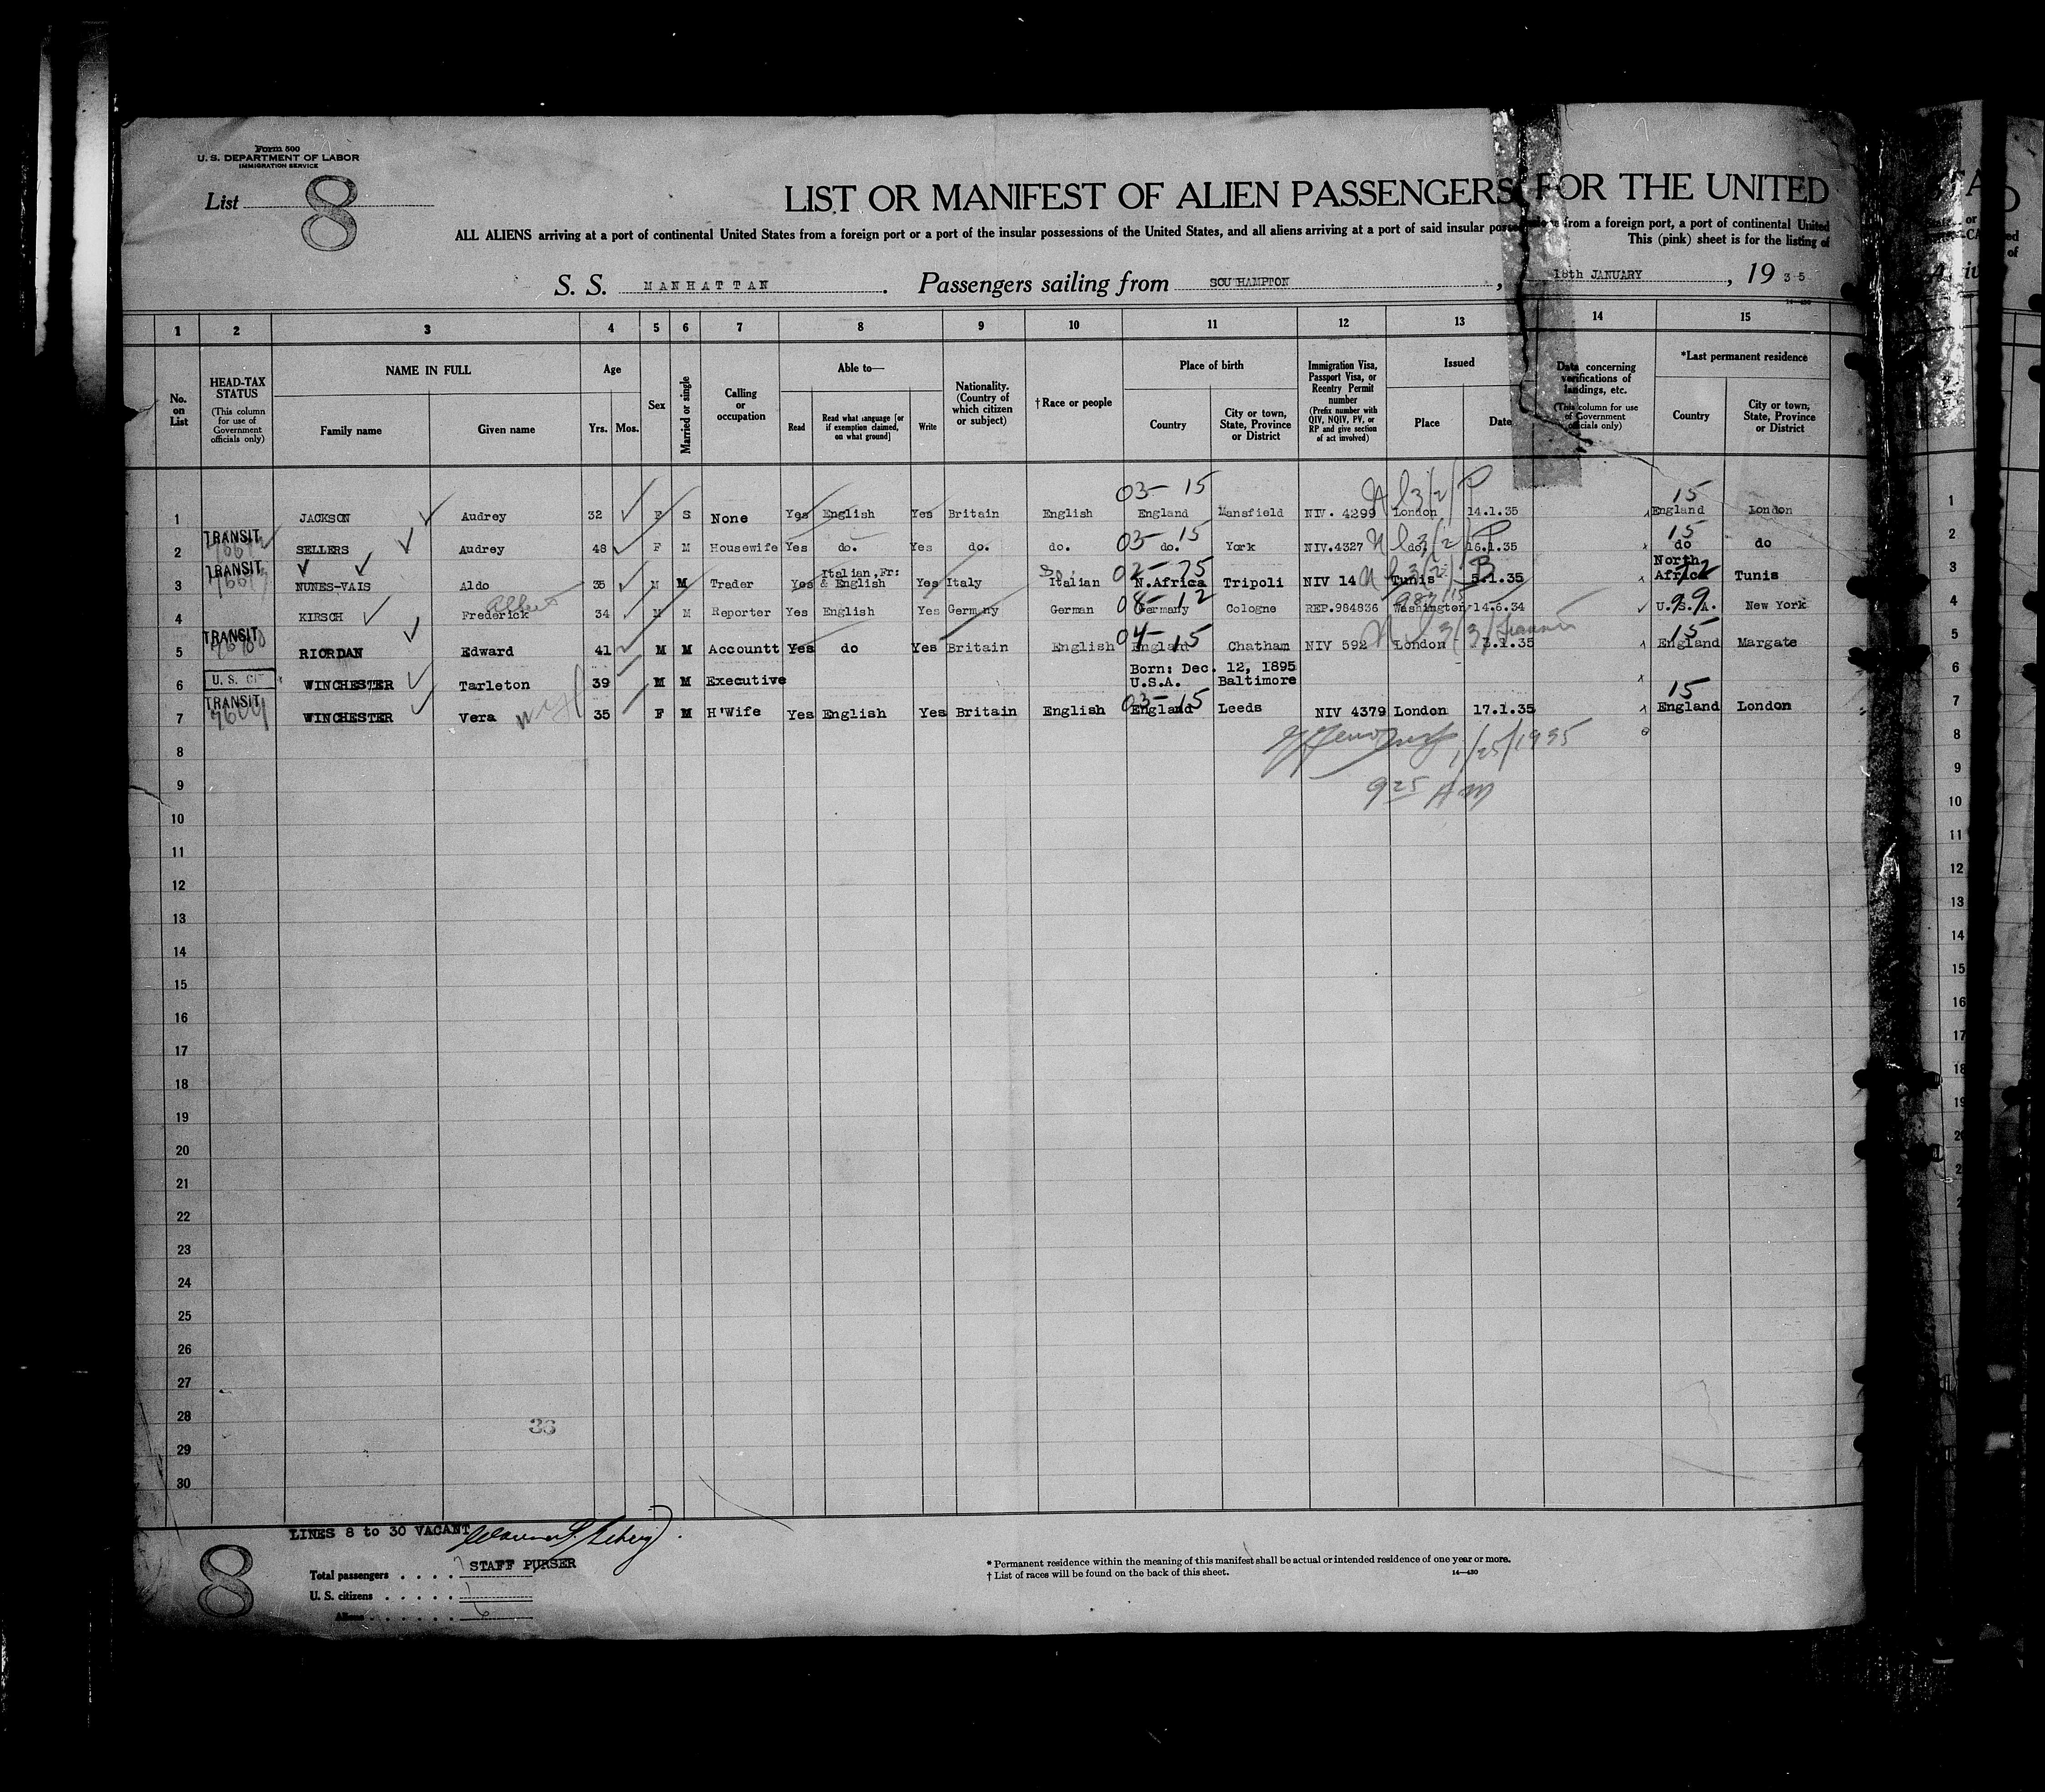 Form 500
U. S. DEPARTMENT OF LABOR
IMMIGRATION SERVICE
List 8
LIST OR MANIFEST OF ALIEN PASSENGERS FOR THE UNITED
ALL ALIENS arriving at a port of continental United States from a foreign port or a port of the insular possessions of the United States, and all aliens arriving at a port of said insular from a foreign port, a port of continental United
This (pink) sheet is for the listing of
S. S. MANHATTAN. Passengers sailing from SOUTHAMPTON, 18th JANUARY, 1935
1 2 3 4 5 6 7 8 9 10 11 12 13 14 15
No. on List
HEAD-TAX STATUS
(This column for use of Government officials only)
NAME IN FULL
Family name Given name
Age
Yrs. Mos.
Sex
Married or single
Calling or occupation
Able to—
Read
Read what language [or if exemption claimed, on what ground]
Write
Nationality. (Country of which citizen or subject)
† Race or people
Place of birth
Country
City or town, State, Province or District
Immigration Visa, Passport Visa, or Reentry Permit number
(Prefix number with QIV, NQIV, PV, or RP and give section of act involved)
Issued
Place Date
Data concerning verifications of landings, etc.
(This column for use of Government officials only)
*Last permanent residence
Country
City or town, State, Province or District
03- 15 15
1 JACKSON Audrey 32 F S None Yes English Yes Britain English England Mansfield NIV. 4299 London 14.1.35 England London 1
TRANSIT 03- 15 15
2 SELLERS Audrey 48 F M Housewife Yes do. Yes do. do. do. York NIV.4327 do. 16.1.35 do do 2
TRANSIT Italian, Fr: 02-75 North
3 NUNES-VAIS Aldo 35 M M Trader Yes & English Yes Italy Italian N.Africa Tripoli NIV 14 Tunis 5.1.35 Africa Tunis 3
Albert 08-12 99
4 KIRSCH Frederick 34 M M Reporter Yes English Yes Germany German Germany Cologne REP.984836 Washington 14.6.34 U.S.A. New York 4
TRANSIT 04- 15 15
5 RIORDAN Edward 41 M M Accountt Yes do Yes Britain English England Chatham NIV 592 London 3.1.35 England Margate 5
U. S. CIT Born: Dec. 12, 1895
6 WINCHESTER Tarleton 39 M M Executive U.S.A. Baltimore 6
TRANSIT 03-15 15
7 WINCHESTER Vera wife 35 F M H'Wife Yes English Yes Britain English England Leeds NIV 4379 London 17.1.35 England London 7
1/25/1935
9 25 AM
8 8
9 9
10 10
11 11
12 12
13 13
14 14
15 15
16 16
17 17
18 18
19 19
20
21
22
23
24
25
26
27
28
36
29
30
LINES 8 to 30 VACANT
STAFF PURSER
8
Total passengers . . . . 7
U. S. citizens . . . . . 1
Aliens . . . . . . 6
* Permanent residence within the meaning of this manifest shall be actual or intended residence of one year or more.
† List of races will be found on the back of this sheet.
14—430